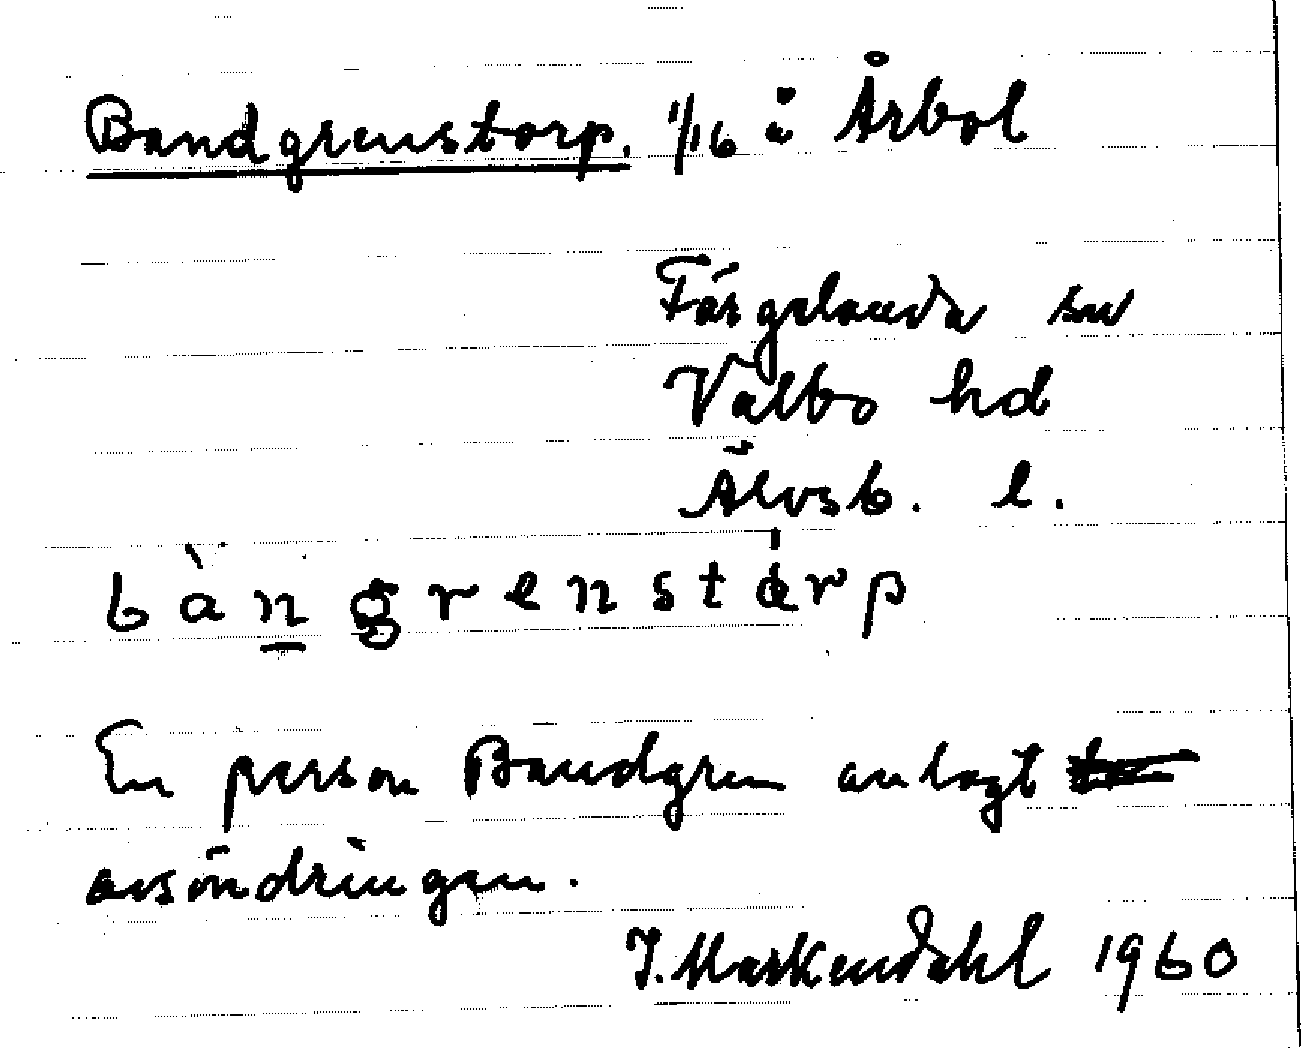 Bandgrenstorp. 1/16 i Årbol
Färgelanda sn
Valbo hd
Älvsb. l.
bàngrenstȧrp
En person Bandgren anlagt
avsöndringen.
J. Markendahl 1960